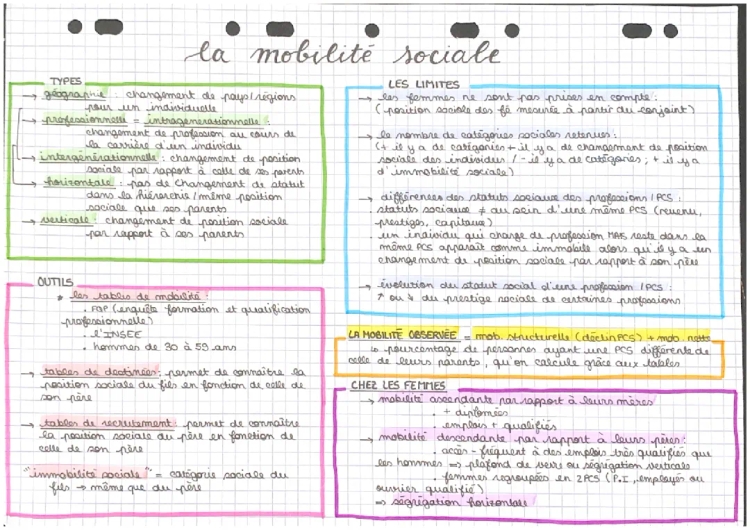 la mobilité sociale
TYPES
→ géographie : changement de pays/régions
pour un individuelle
→ professionnelle = intragénérationnelle :
changement de profession au cours de
la carrière d'un individu
→ intergénérationnelle : changement de position
sociale par rapport à celle de ses parents
→ horizontale : pas de changement de statut
dans la hiérarchie / même position
sociale que ses parents
→ verticale : changement de position sociale
par rapport à ses parents
OUTILS
* les tables de mobilité :
• FQP (enquête formation et qualification
professionnelle)
• l'INSEE
• hommes de 30 à 59 ans
→ tables de destinées : permet de connaître la
position sociale du fils en fonction de celle de
son père
→ tables de recrutement : permet de connaître
la position sociale du père en fonction de
celle de son père
"immobilité sociale" = catégorie sociale du
fils → même que du père
LES LIMITES
→ les femmes ne sont pas prises en compte :
(position sociale des fé mesurée à partir du conjoint)
→ le nombre de catégories sociales retenues :
(+ il y a de catégories + il y a de changement de position
sociale des individus / - il y a de catégories ; + il y a
d'immobilité sociale)
→ différences des statuts sociaux des professions / PCS :
statuts sociaux ≠ au sein d'une même PCS (revenu,
prestige, capitaux)
un individu qui change de profession MAIS reste dans la
même PCS apparaît comme immobile alors qu'il y a un
changement de position sociale par rapport à son père
→ évolution du statut social d'une profession / PCS :
↑ ou ↓ du prestige sociale de certaines professions
LA MOBILITÉ OBSERVÉE = mob. structurelle (déclin PCS) + mob. nette
↳ pourcentage de personnes ayant une PCS différente de
celle de leurs parents, qu'on calcule grâce aux tables
CHEZ LES FEMMES
→ mobilité ascendante par rapport à leurs mères
• + diplômées
• emplois + qualifiés
→ mobilité descendante par rapport à leurs pères :
• accès - fréquent à des emplois très qualifiés que
les hommes ⇒ plafond de verre ou ségrégation verticale
• femmes regroupées en 2 PCS (P.I, employés ou
ouvrier qualifié)
⇒ ségrégation horizontale